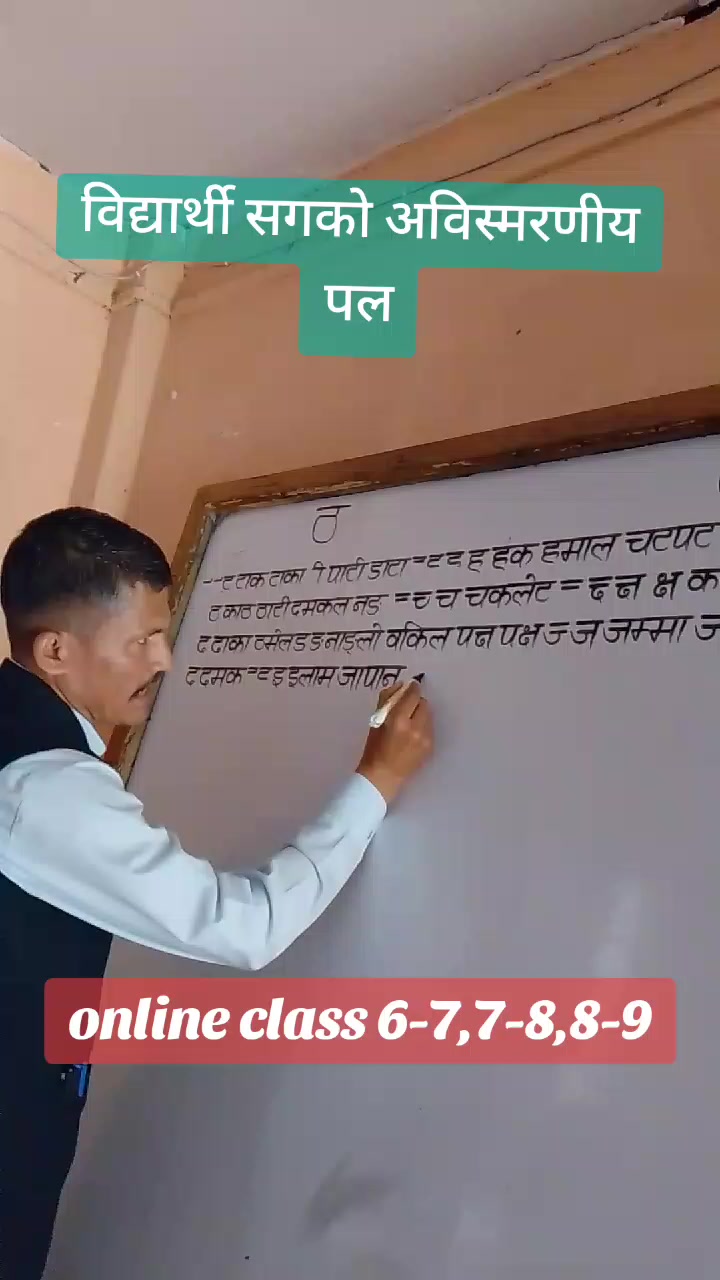 विद्यार्थी सगको अविस्मरणीय
पल
ठ
--ट टाक टाका ी पाटी डाटा = ह हक हमाल चटपट
ठ काठ ठारी दमकल नङ = च च चकलेट = द क्ष क
ढ ढाका ठमेल ड ङ नाइलो वकिल पक्ष ज ज जम्मा ज
द दमक = इ इलाम जापान
online class 6-7,7-8,8-9